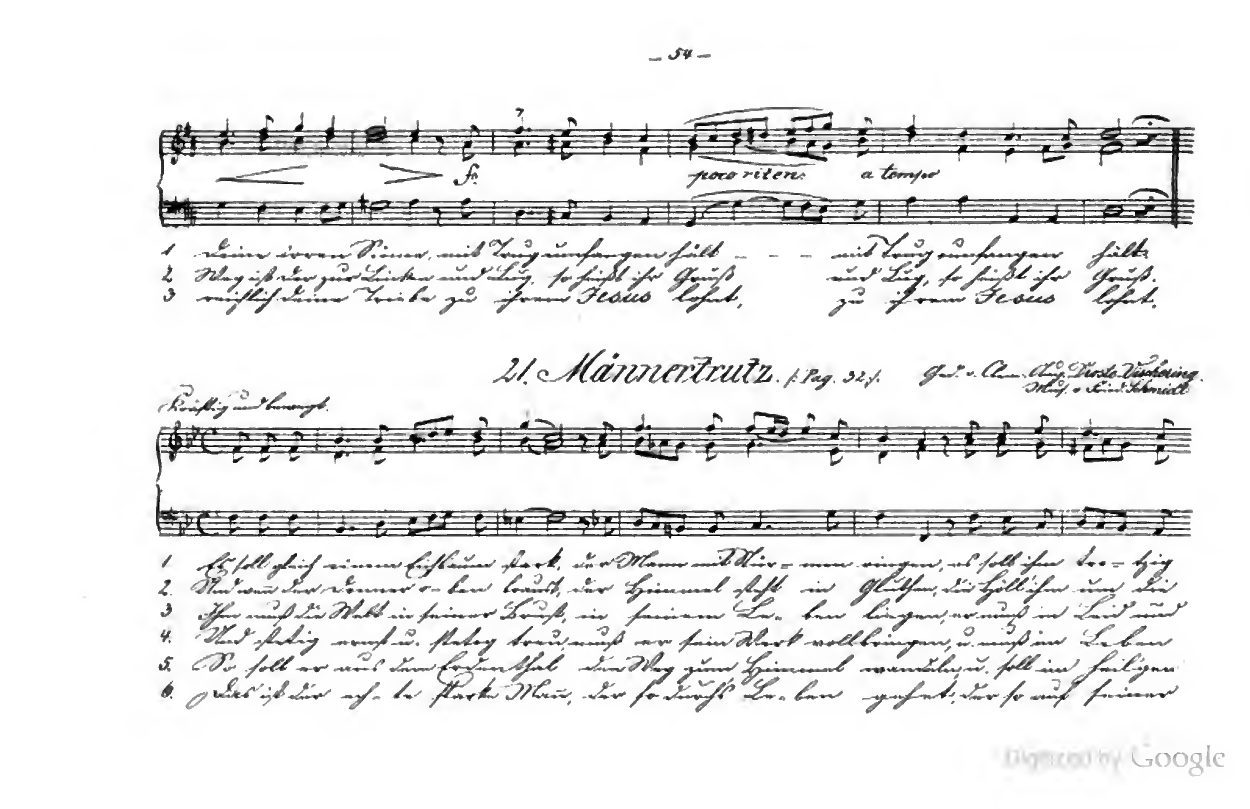 – 54 –
7
f.
poco riten:
a tempo
1 deine irren Sinne, mit Trug umfangen hält – – – mit Trug umfangen hält.
2 Weg ist der zur Linken und Lug, so heißt ihr Gruß und Lug, so heißt ihr Gruß.
3 reichlich deine Triebe zu ihrem Jesus lohnt, zu ihrem Jesus lohnt.
21. Männertrutz. (: Pag. 32 :)
Ged. v. Clem. Aug. Droste-Vischering.
Mus. v. Fried. Schmidt
Kräftig und bewegt.
1. Es soll gleich einem Eichbaum stark, der Mann mit Stür= men ringen, es soll ihm tro= tzig
2. Und wenn der Donner o= ben braust, der Himmel steht in Gluthen, die Höll ihm um die
3 Ihm muß die Welt in seiner Brust, in seinem Le= ben liegen, er muß in Leid und
4. Und stetig ernst u. stetig treu, muß er sein Werk vollbringen, u. muß im Leben
5. So soll er aus dem Erdenthal den Weg zum Himmel wandeln, u. soll im heiligen
6. Das ist der ech= te starke Mann, der so durchs Le= ben gehet, der so auf seiner
Digitized by Google